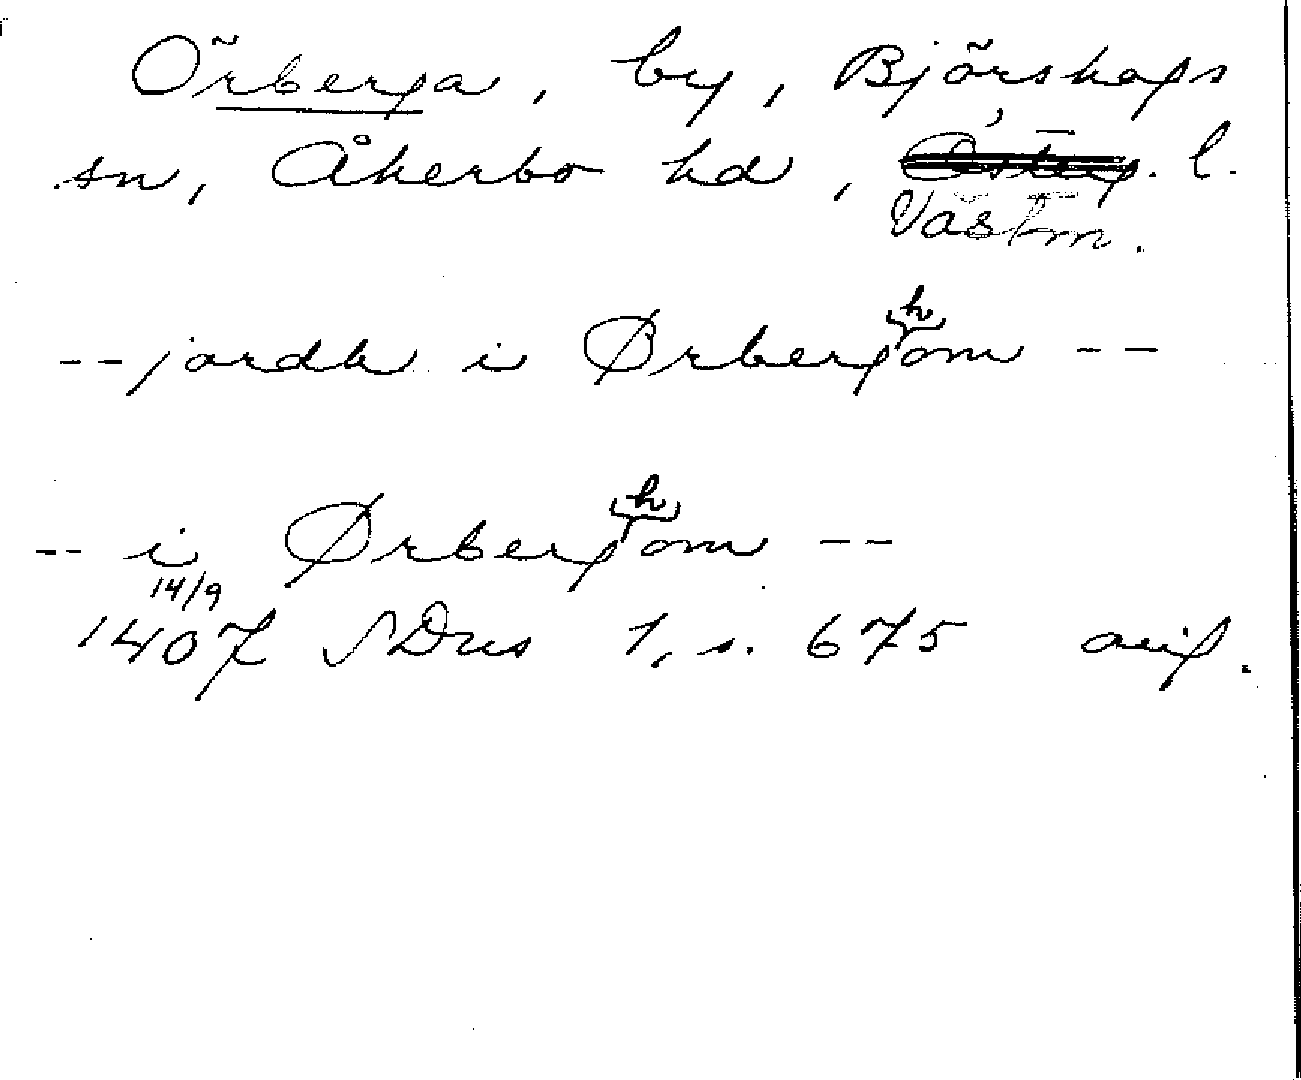 Örberga, by, Björskogs
sn, Åkerbo hd, Österg. l.
Västm.
-- jordh i Ørberghom --
-- i Ørberghom --
14/9
1407 SDns 1, s. 675 avig.